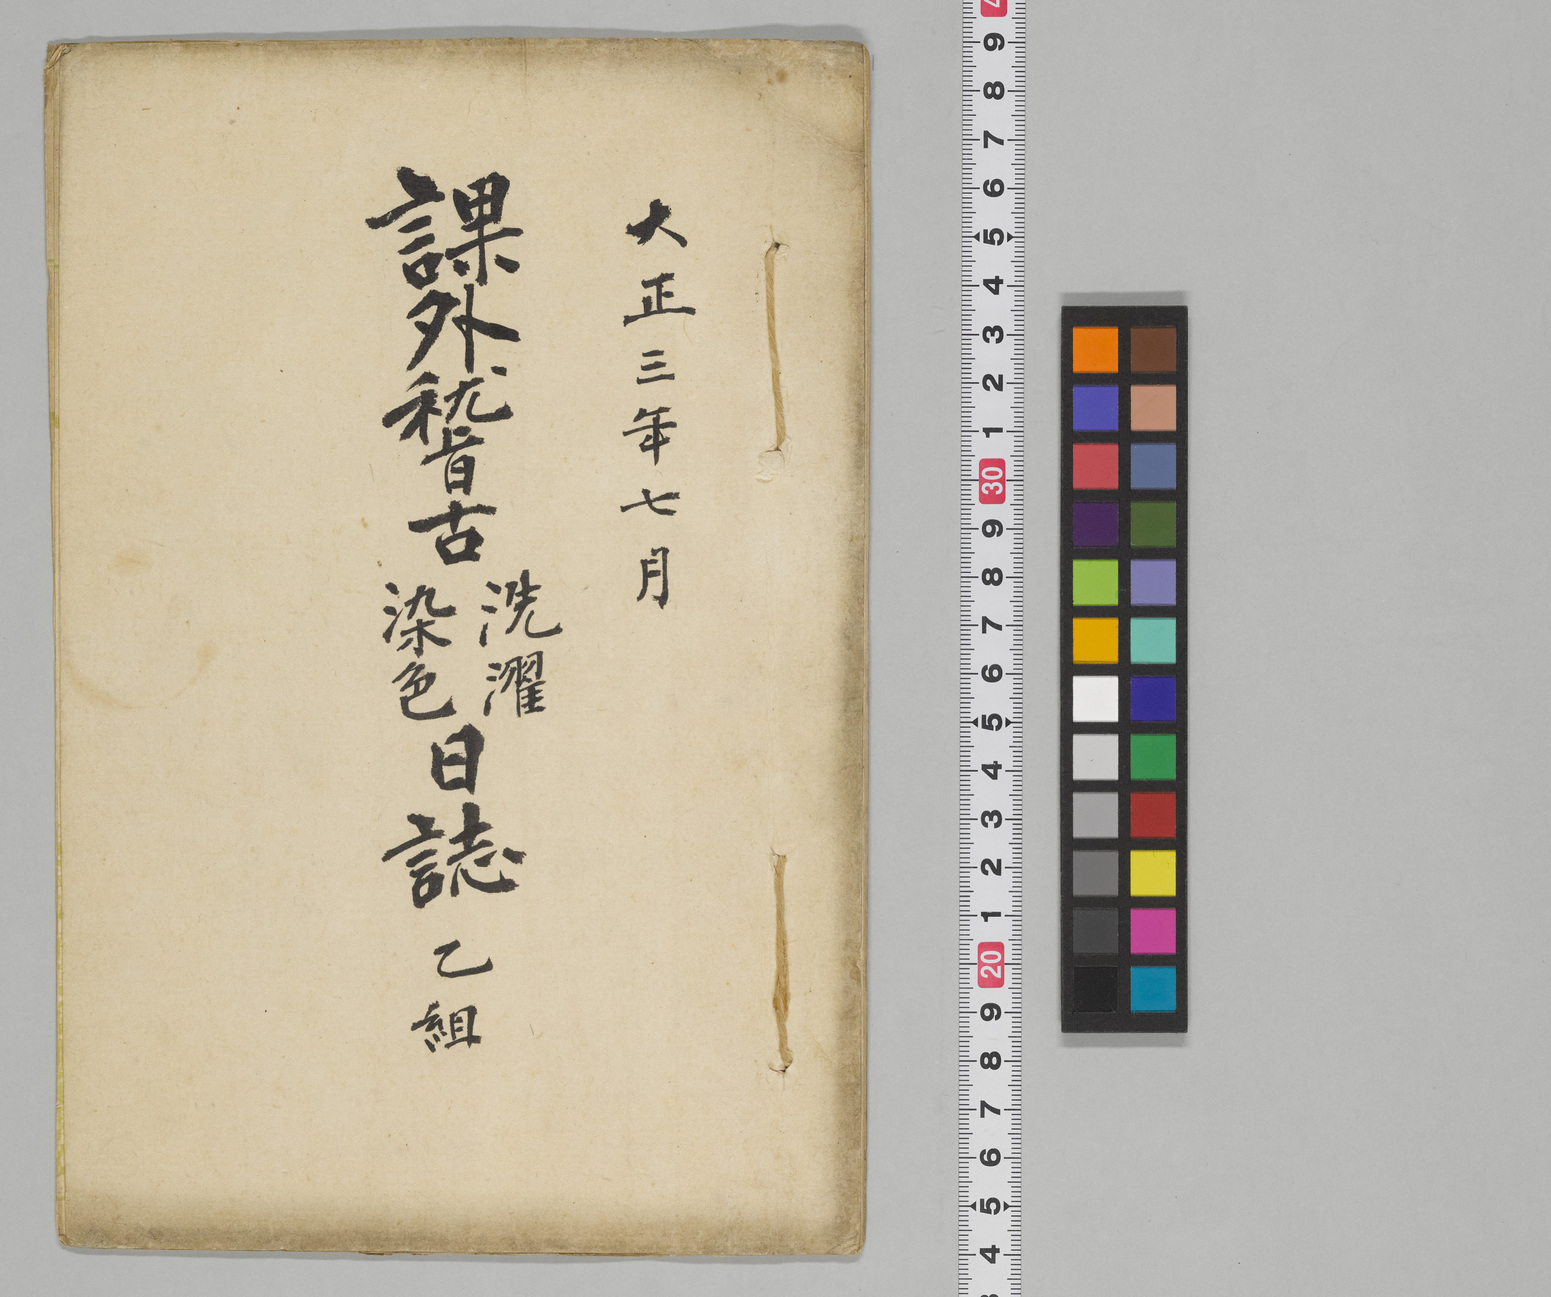 大正三年七月
課外稽古
洗濯
染色
日誌
乙組
4
9
8
7
6
5
4
3
2
1
30
9
8
7
6
5
4
3
2
1
20
9
8
7
6
5
4